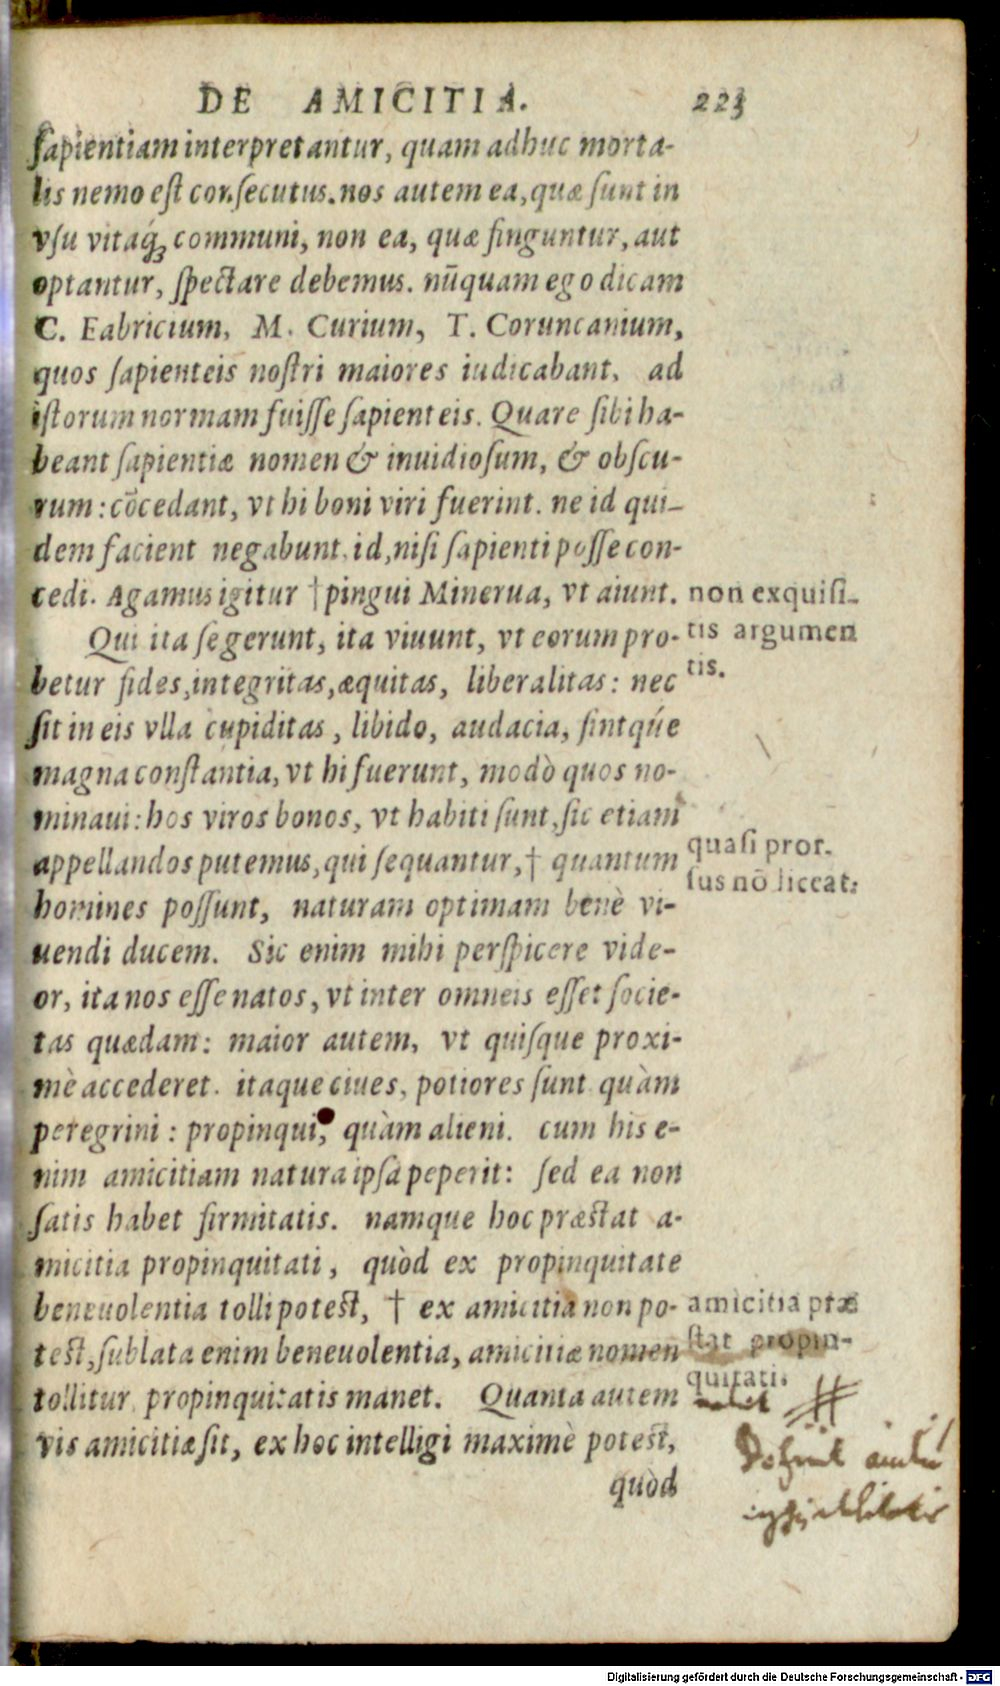 DE AMICITIA. 223
sapientiam interpretantur, quam adhuc morta-
lis nemo est consecutus. nos autem ea, quæ sunt in
vsu vitaq́; communi, non ea, quæ finguntur, aut
optantur, spectare debemus. nūquam ego dicam
C. Fabricium, M. Curium, T. Coruncanium,
quos sapienteis nostri maiores iudicabant, ad
istorum normam fuisse sapienteis. Quare sibi ha-
beant sapientiæ nomen & inuidiosum, & obscu-
rum: cōcedant, vt hi boni viri fuerint. ne id qui-
dem facient negabunt, id, nisi sapienti posse con-
cedi. Agamus igitur † pingui Minerua, vt aiunt.
non exquisi-
tis argumen
tis.
Qui ita se gerunt, ita viuunt, vt eorum pro-
betur fides, integritas, æquitas, liberalitas: nec
sit in eis vlla cupiditas, libido, audacia, sintq́ue
magna constantia, vt hi fuerunt, modò quos no-
minaui: hos viros bonos, vt habiti sunt, sic etiam
appellandos putemus, qui sequantur, † quantum
quasi pror.
sus nō liceat:
homines possunt, naturam optimam benè vi-
uendi ducem. Sic enim mihi perspicere vide-
or, ita nos esse natos, vt inter omneis esset socie-
tas quædam: maior autem, vt quisque proxi-
mè accederet. itaque ciues, potiores sunt quàm
peregrini: propinqui, quàm alieni. cum his e-
nim amicitiam natura ipsa peperit: sed ea non
satis habet firmitatis. namque hoc præstat a-
micitia propinquitati, quòd ex propinquitate
beneuolentia tolli potest, † ex amicitia non po-
test, sublata enim beneuolentia, amicitiæ nomen
tollitur, propinquitatis manet. Quanta autem
amicitia præ
stat propin-
quitati.
vis amicitiæ sit, ex hoc intelligi maximè potest,
quòd
Digitalisierung gefördert durch die Deutsche Forschungsgemeinschaft - DFG